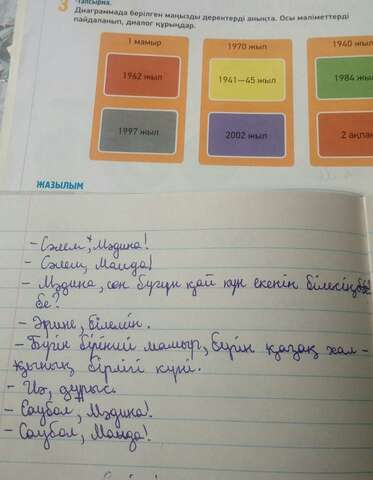 3 -тапсырма.
Диаграммада берілген маңызды деректерді анықта. Осы мәліметтерді
пайдаланып, диалог құрыңдар.
1 мамыр
1970 жыл
1940 жыл
1962 жыл
1941—45 жыл
1984 жыл
1997 жыл
2002 жыл
2 ақпан
ЖАЗЫЛЫМ
- Сәлем, Мәдина!
- Сәлем, Манда!
- Мәдина, сен бүгүн қай күн екенін білесің
бе?
- Әрине, білемін.
- Бүгін бірінші мамыр, бүгін қазақ хал-
қының бірлігі күні.
- Иә, дұрыс.
- Саубол, Мәдина!
- Саубол, Манда!